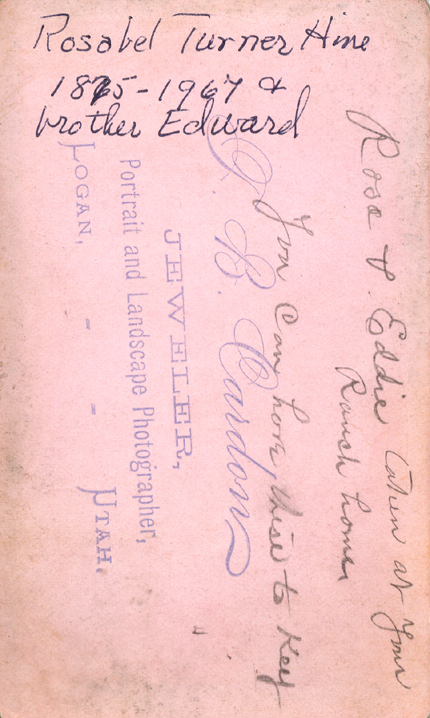 Rosabel Turner Hine
1875-1967 &
brother Edward
Rose & Eddie taken at your
Ranch home
You can have these to keep
B. Cardon
JEWELER,
Portrait and Landscape Photographer,
LOGAN, - - UTAH.